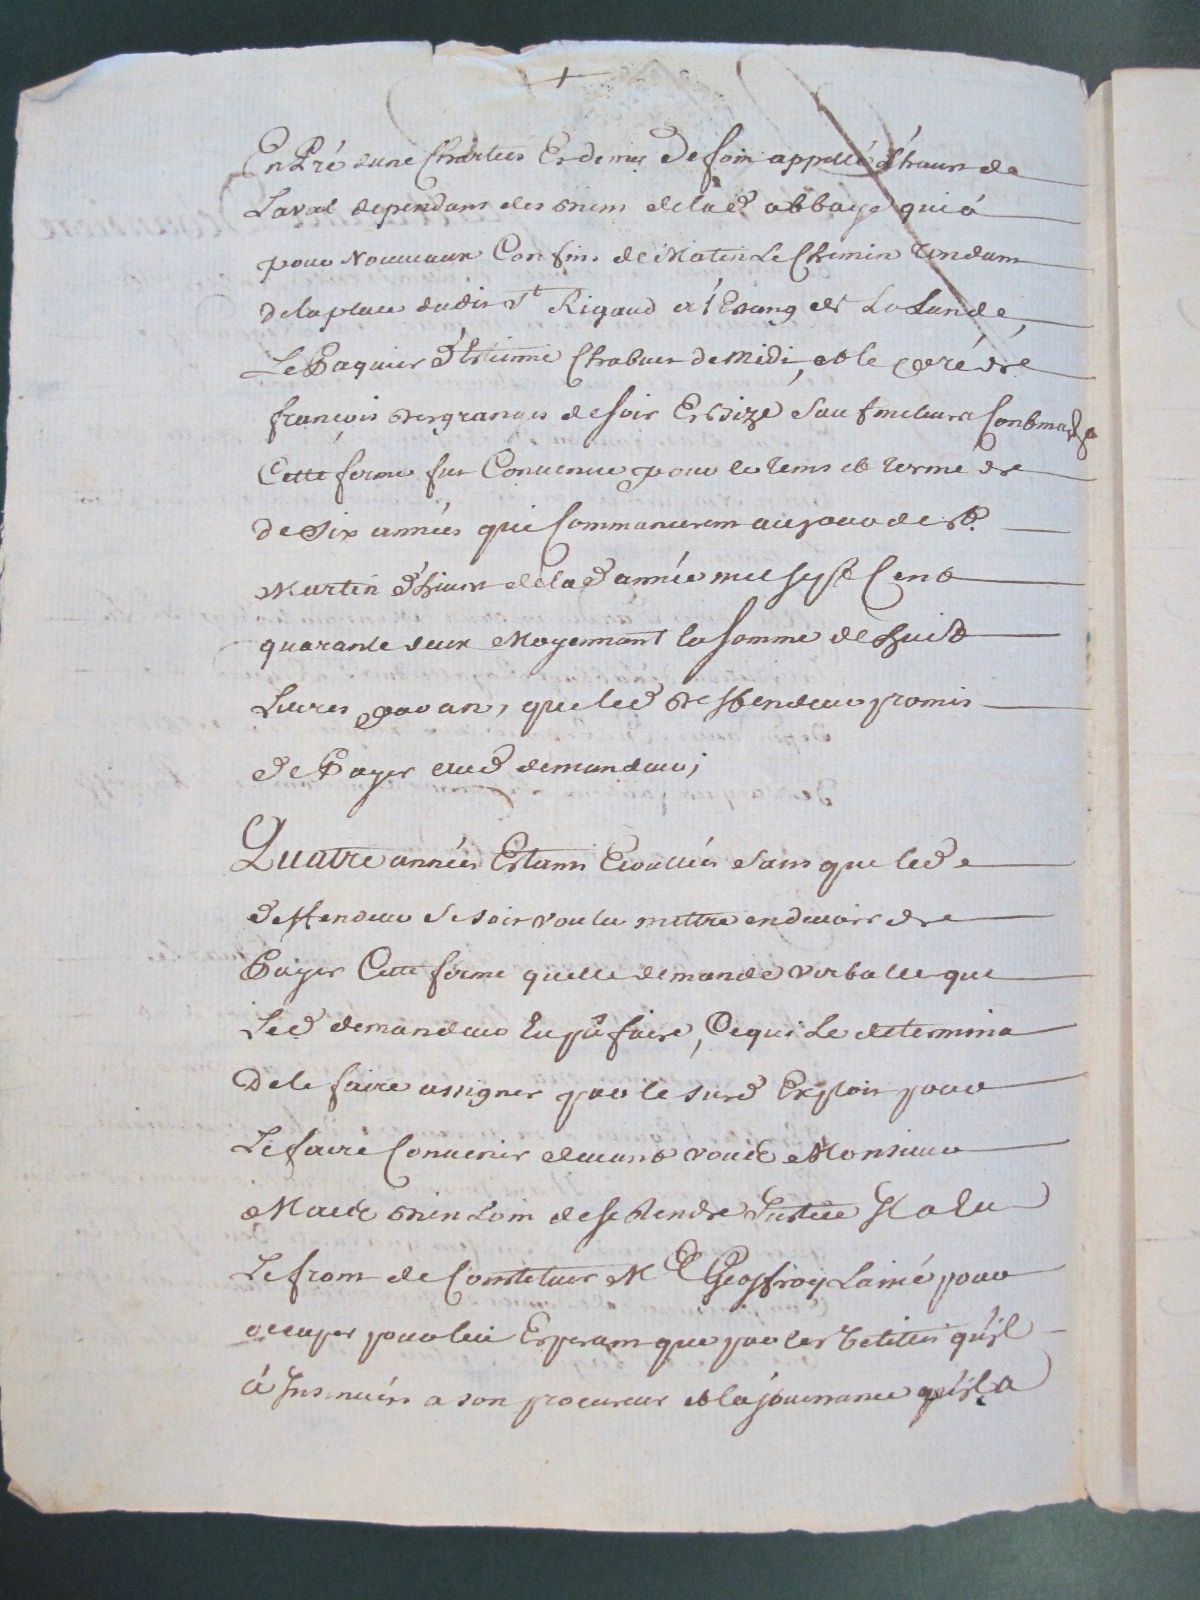 En Pré d'une Chartée Et demie De foin appellé L'haut de
Laval dependant des biens de lad abbaye qui a
pour Nouveaux Confins de Matin Le Chemin tendant
de la place dudit St Rigaud a l'Etang de La Lande,
Le Paquier d'Etienne Chabuet de Midi, et le Pré de
françois Desgranges de soir Et bize sauf meilleurs Conf
Cette ferme fut Convenue pour le tems et terme de
de Six années qui Commancerent au jour de St
Martin d'hiver de lad année mil sept Cent
quarante deux Moyennant la somme de huit
Livres par an, que led deffendeur promis
de Payer aud demandeur;
Quatre années Etants Ecoullées sans que led
deffendeur se soit voulu mettre en devoir de
Payer Cette ferme quelle demande verballe que
Led demandeur Eu pû faire, Ce qui Le determina
De le faire assigner par le susd Exploit pour
Le faire Convenir devant vous Monsieur
Mais bien Loin de se Rendre Justice Il a Eu
Le front de Constituer Me Geoffroy Lainé pour
occuper pour lui Esperant que par les qu'il
a Insinués a son procureur et la qu'il a